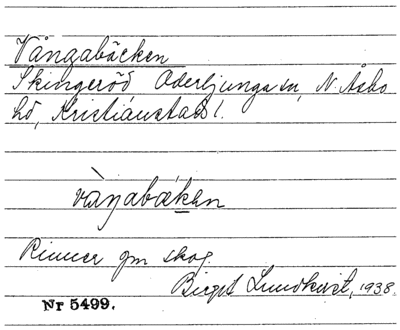 Vångabäcken
Skingeröd, Oderljunga sn, N. Åsbo
hd, Kristianstads l.
vàŋabækan
Rinner gm skog.
Birgit Lundkvist, 1938.
Nr 5499.